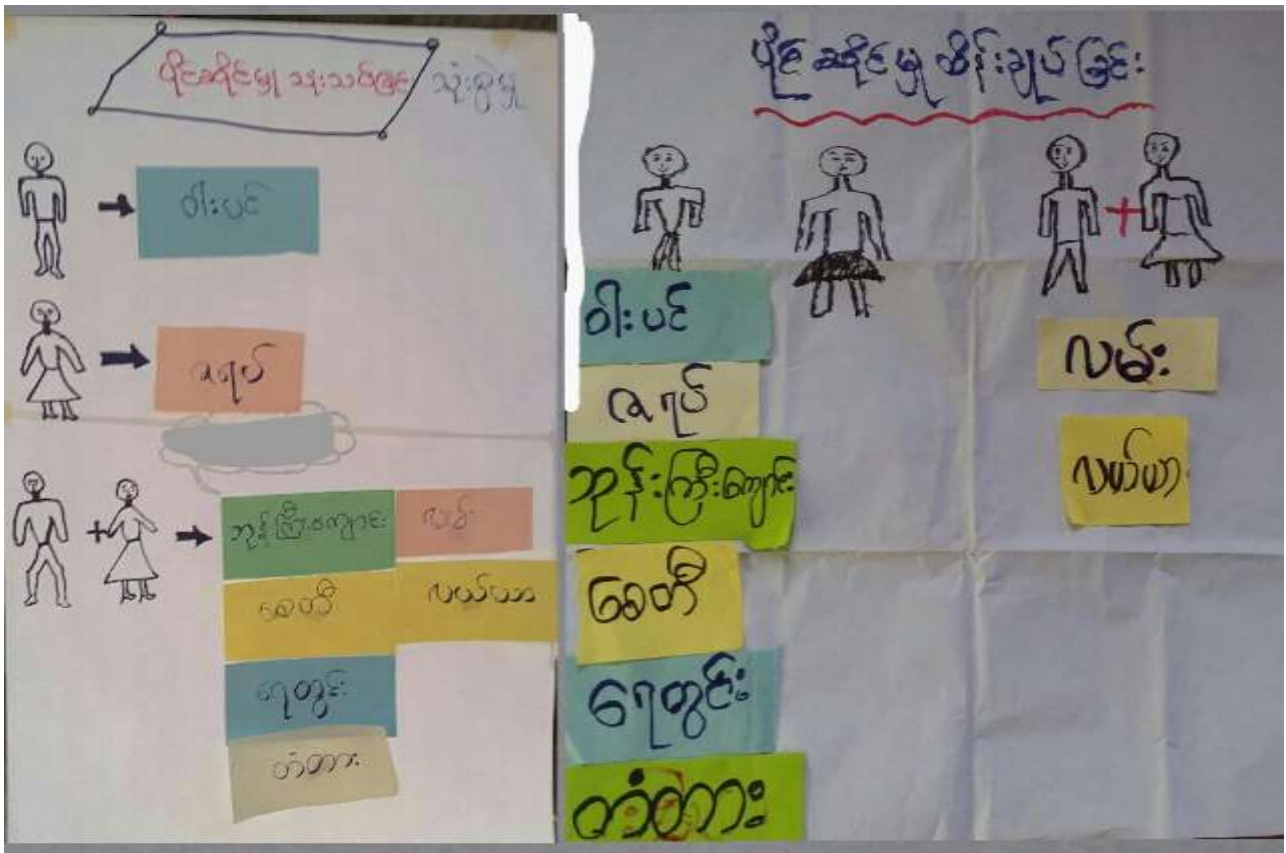 ပိုင်ဆိုင်မှု သုံးသပ်ခြင်း သုံးစွဲမှု
ဝါးပင်
ဇရပ်
ဘုန်းကြီးကျောင်း
လမ်း
စေတီ
လယ်ယာ
ရေတွင်း
တံတား
ပိုင်ဆိုင်မှု ထိန်းချုပ်ခြင်း
ဝါးပင်
လမ်း
ဇရပ်
ဘုန်းကြီးကျောင်း
လယ်ယာ
စေတီ
ရေတွင်း
တံတား